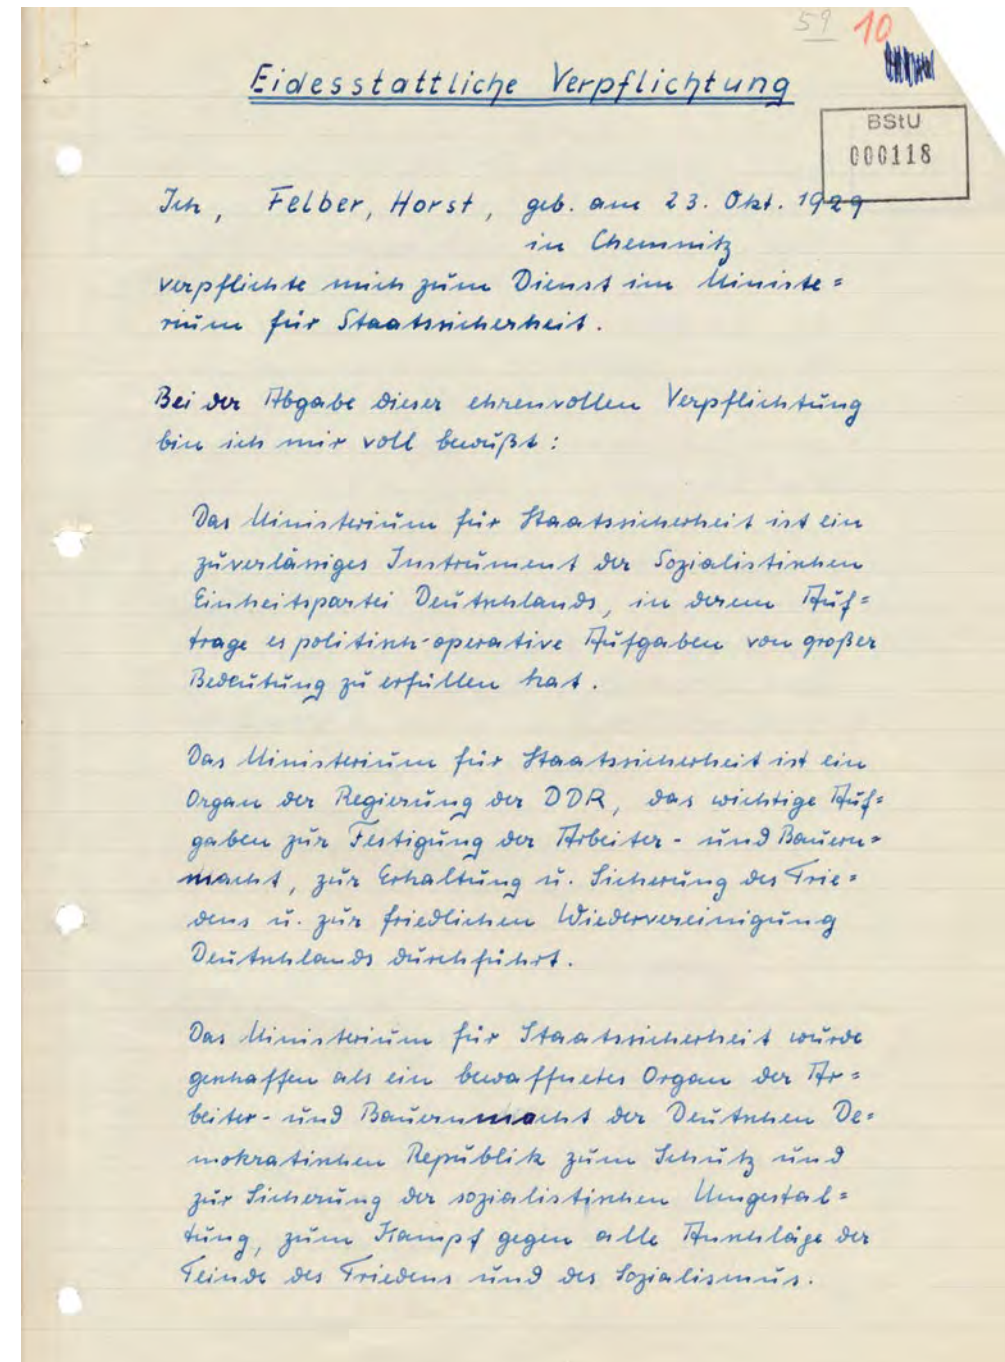 59 10
Eidesstattliche Verpflichtung
BStU
000118
Ich, Felber, Horst, geb. am 23. Okt. 1929
in Chemnitz
verpflichte mich zum Dienst im Ministe=
rium für Staatssicherheit.
Bei der Abgabe dieser ehrenvollen Verpflichtung
bin ich mir voll bewußt:
Das Ministerium für Staatssicherheit ist ein
zuverlässiges Instrument der Sozialistischen
Einheitspartei Deutschlands, in derem Auf=
trage es politisch-operative Aufgaben von großer
Bedeutung zu erfüllen hat.
Das Ministerium für Staatssicherheit ist ein
Organ der Regierung der DDR, das wichtige Auf=
gaben zur Festigung der Arbeiter- und Bauern=
macht, zur Erhaltung u. Sicherung des Frie=
dens u. zur friedlichen Wiedervereinigung
Deutschlands durchführt.
Das Ministerium für Staatssicherheit wurde
geschaffen als ein bewaffnetes Organ der Ar=
beiter- und Bauernmacht der Deutschen De=
mokratischen Republik zum Schutz und
zur Sicherung der sozialistischen Umgestal=
tung, zum Kampf gegen alle Anschläge der
Feinde des Friedens und des Sozialismus.